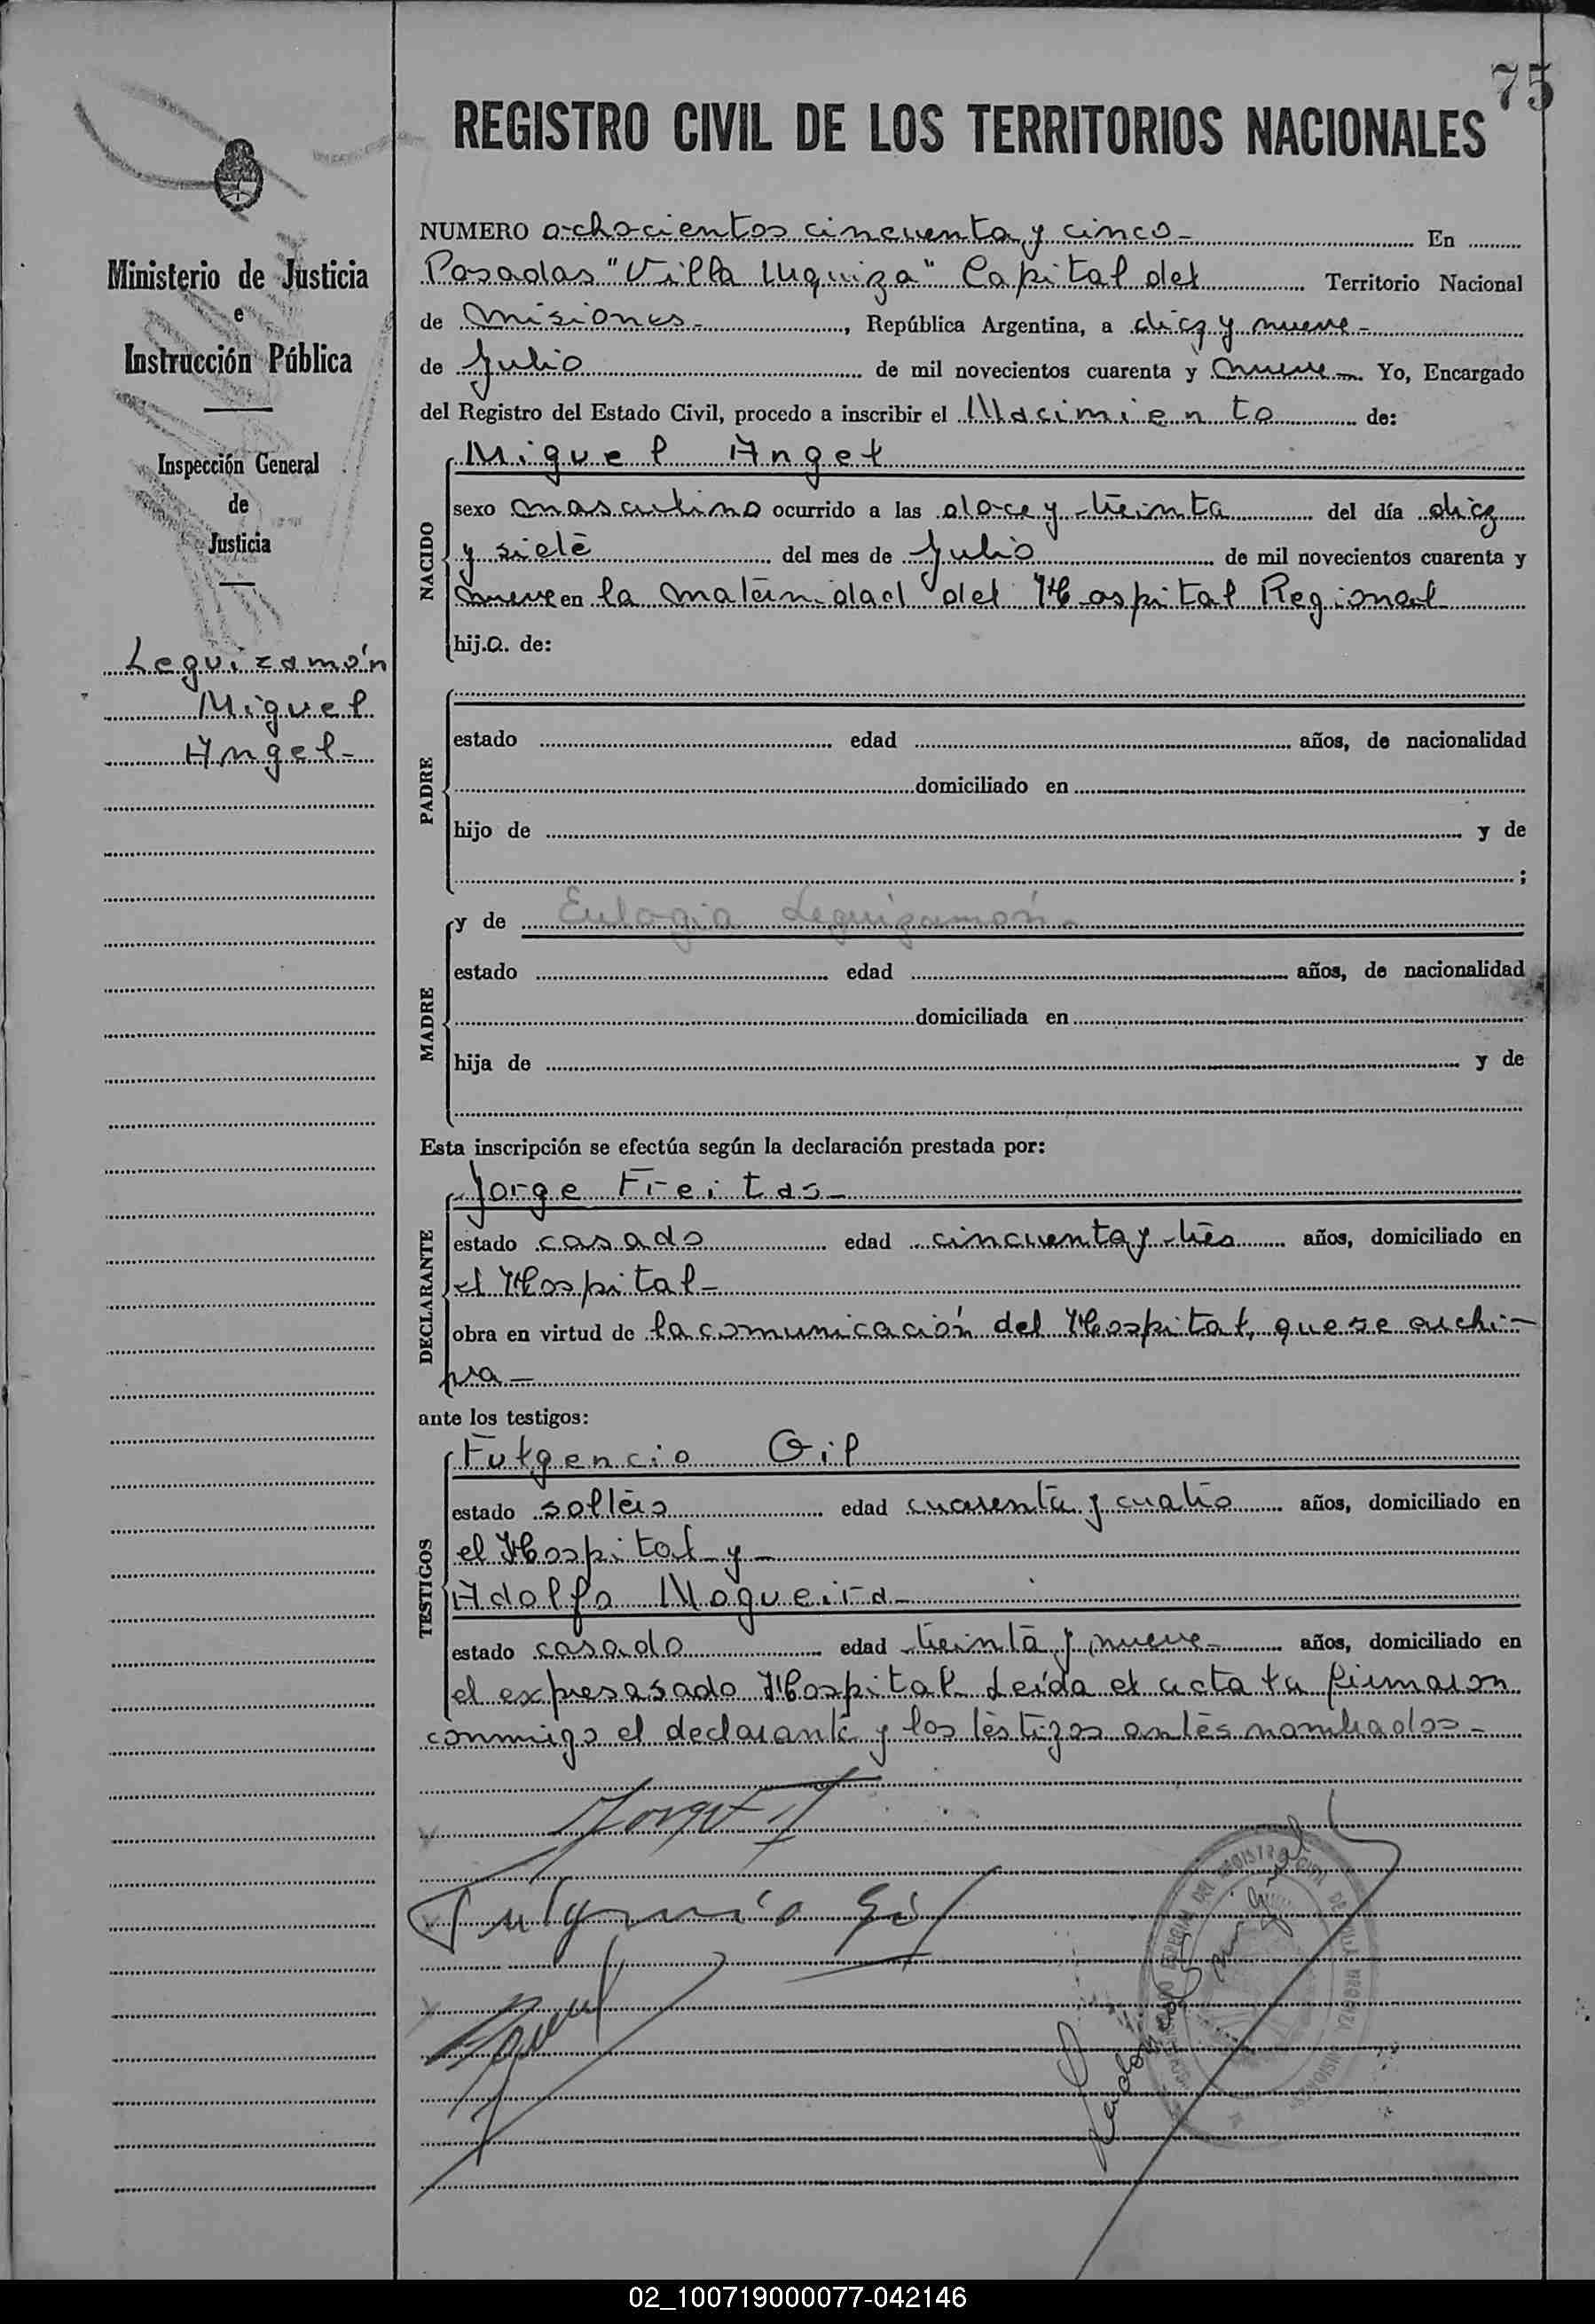 75
REGISTRO CIVIL DE LOS TERRITORIOS NACIONALES
Ministerio de Justicia
e
Instrucción Pública
Inspección General
de
Justicia
Leguizamón
Miguel
Angel-
NUMERO ochocientos cincuenta y cinco- En
Posadas "Villa Urquiza" Capital del Territorio Nacional
de Misiones-, República Argentina, a diez y nueve-
de Julio de mil novecientos cuarenta y nueve-. Yo, Encargado
del Registro del Estado Civil, procedo a inscribir el Nacimiento de:
NACIDO
Miguel Angel
sexo masculino ocurrido a las doce y treinta del día diez
y siete del mes de Julio de mil novecientos cuarenta y
nueve en la maternidad del Hospital Regional
hijo. de:
PADRE
estado edad años, de nacionalidad
domiciliado en
hijo de y de
;
MADRE
y de Eulogia Leguizamón-
estado edad años, de nacionalidad
domiciliada en
hija de y de
Esta inscripción se efectúa según la declaración prestada por:
DECLARANTE
Jorge Freitas-
estado casado edad cincuenta y tres años, domiciliado en
el Hospital-
obra en virtud de la comunicación del Hospital, que se archi-
va-
ante los testigos:
TESTIGOS
Fulgencio Gil
estado soltero edad cuarenta y cuatro años, domiciliado en
el Hospital y-
Adolfo Nogueira-
estado casado edad treinta y nueve- años, domiciliado en
el expresasado Hospital. Leída el acta la firmaron
conmigo el declarante y los testigos antes nombrados-
Fulgencio Gil
02_100719000077-042146